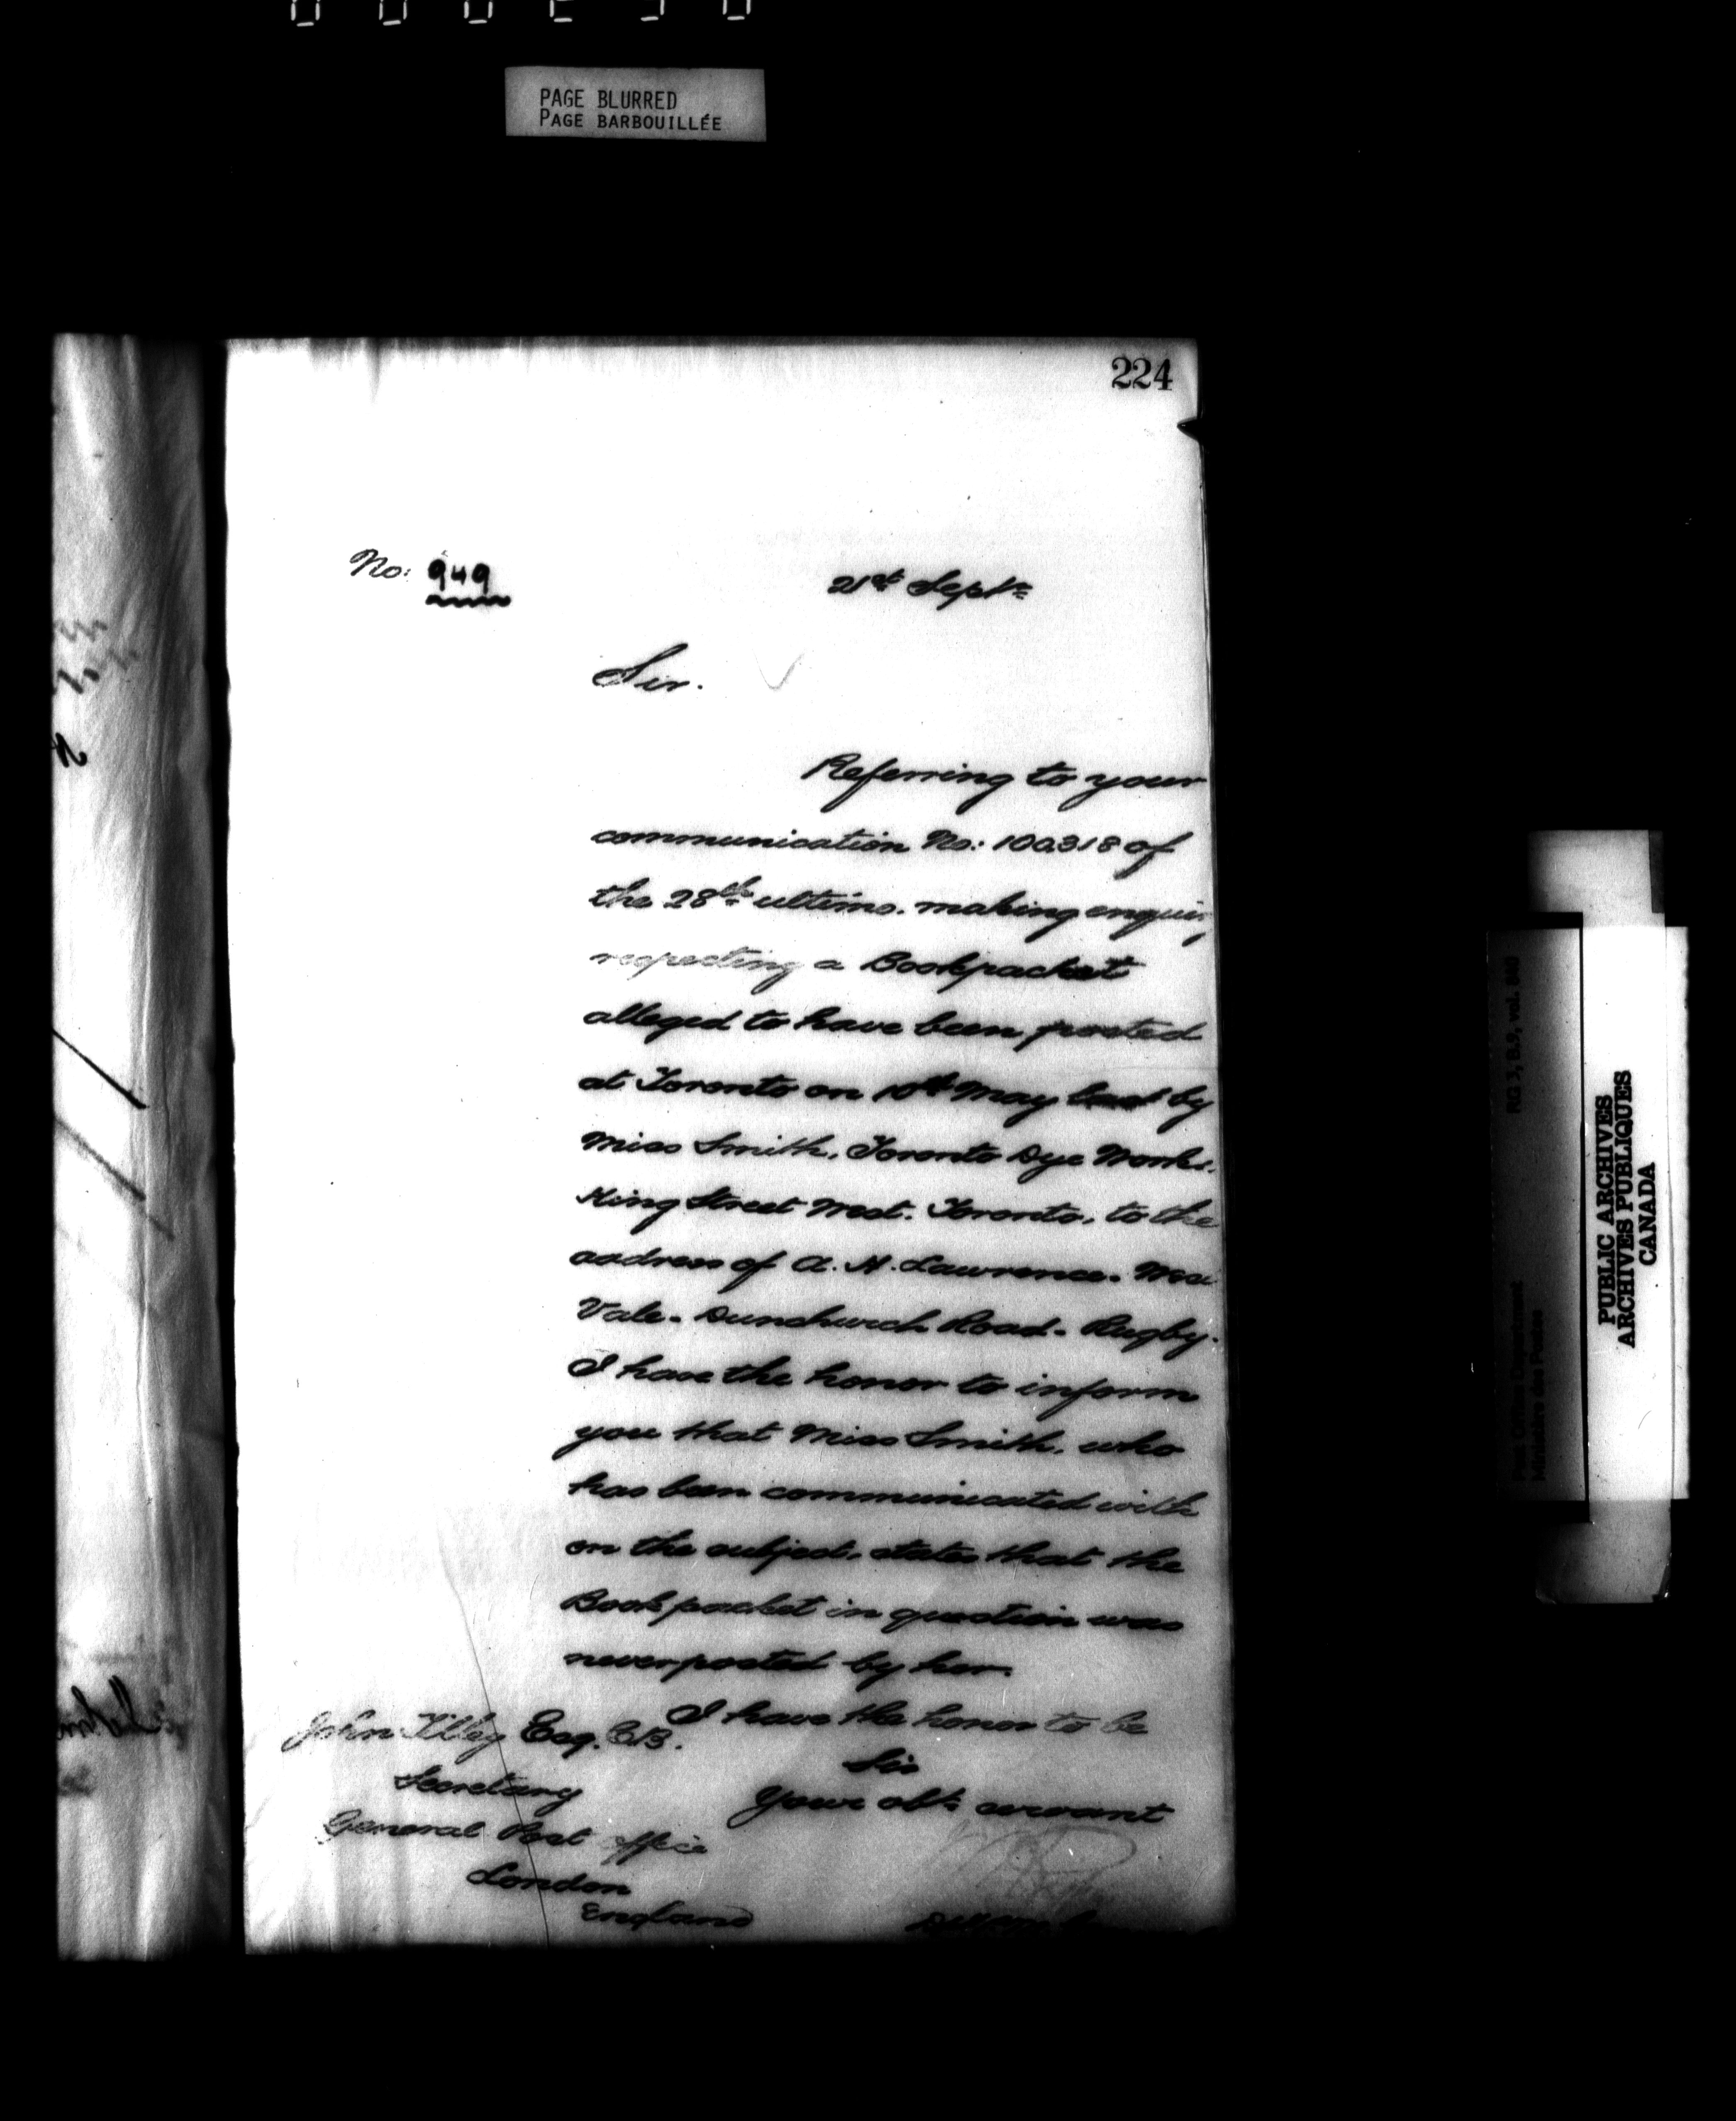 PAGE BLURRED
PAGE BARBOUILLÉE
224
No: 949
21st Septr
Sir.
Referring to your
communication No: 100318 of
the 28th ultimo. making enquir
respecting a Bookpacket
alleged to have been posted
at Toronto on 10th May last by
Miss Smith, Toronto Dye Works.
King Street West. Toronto, to the
address of A. H. Lawrence.
Vale. Dunchurch Road. Rugby.
I have the honor to inform
you that Miss Smith, who
has been communicated with
on the subject, states that the
Book packet in question was
never posted by her.
I have the honor to be
Sir
Your obt. servant
John Tilley Esq. C.B.
Secretary
General Post Office
London
England
RG 3, B.9, vol. 840
Post Office Department
Ministère des Postes
PUBLIC ARCHIVES
ARCHIVES PUBLIQUES
CANADA